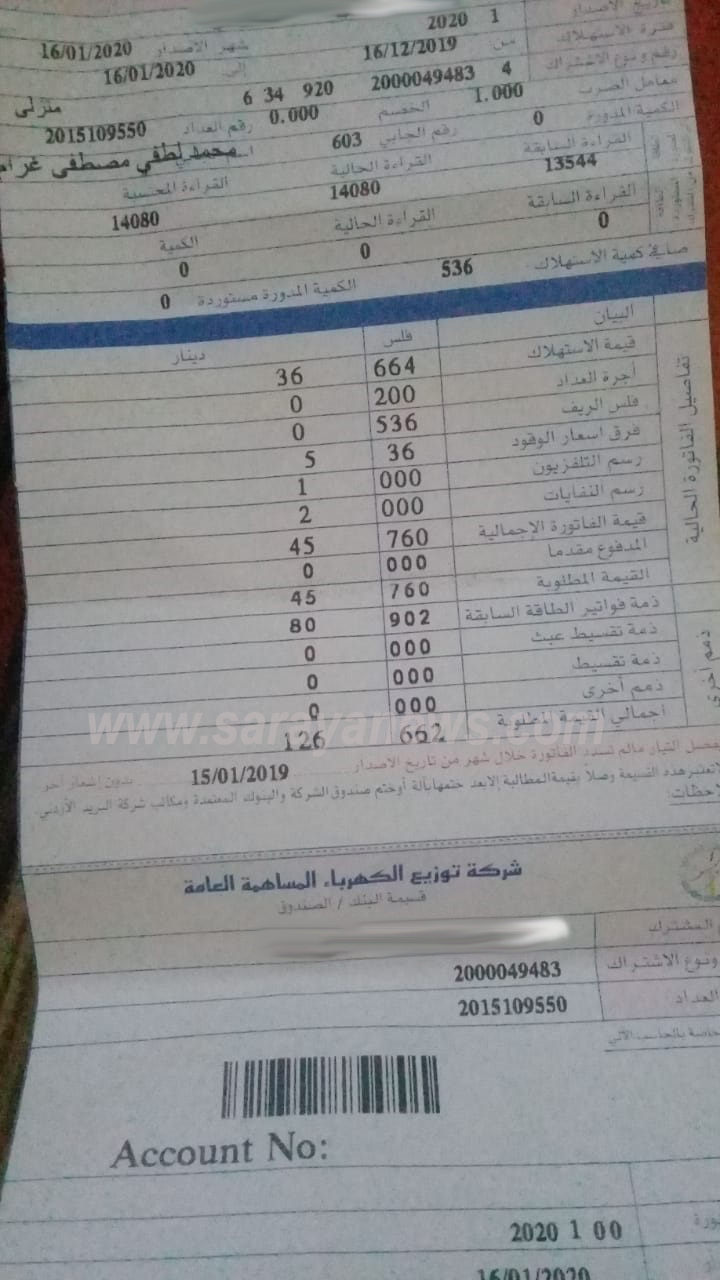 تاريخ الاصدار
2020 1 شهر الاصدار 16/01/2020
فترة الاستهلاك من 16/12/2019 إلى 16/01/2020
رقم ونوع الاشتراك 4 2000049483 920 34 6 منزلي
معامل الضرب 1.000 الخصم 0.000 رقم العداد 2015109550
الكمية المدورة 0 رقم الجابي 603 محمد لطفي مصطفى
القراءة السابقة القراءة الحالية القراءة المحسبة
13544 14080 14080
القراءة السابقة القراءة الحالية الكمية
0 0 0
صافي كمية الاستهلاك 536 الكمية المدورة مستوردة 0
تفاصيل الفاتورة الحالية
البيان فلس دينار
قيمة الاستهلاك 664 36
أجرة العداد 200 0
فلس الريف 536 0
فرق اسعار الوقود 36 5
رسم التلفزيون 000 1
رسم النفايات 000 2
قيمة الفاتورة الإجمالية 760 45
المدفوع مقدما 000 0
القيمة المطلوبة 760 45
ذمم أخرى
ذمة فواتير الطاقة السابقة 902 80
ذمة تقسيط عبث 000 0
ذمة تقسيط 000 0
ذمم أخرى 000 0
اجمالي القيمة المطلوبة 662 126
www.sarayanews.com
يفصل التيار مالم تسدد الفاتورة خلال شهر من تاريخ الاصدار 15/01/2019 بدون اشعار آخر
لاتعتبر هذه القسيمة وصلاً بقيمة المطالبة إلا بعد ختمها بآلة أو ختم صندوق الشركة والبنوك المعتمدة ومكاتب شركة البريد الأردني
ملاحظات:
شركة توزيع الكهرباء المساهمة العامة
قسيمة البنك / الصندوق
المشترك
ونوع الاشتراك 2000049483
العداد 2015109550
خاصة بالحاسب الآلي
Account No:
2020 1 00
16/01/2020